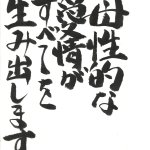 母性的な
愛情が
すべてを
生み出します